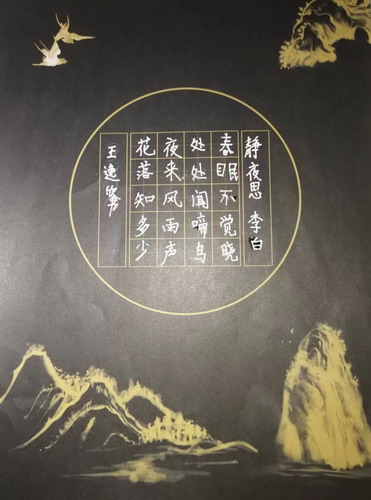 静夜思 李白
春眠不觉晓
处处闻啼鸟
夜来风雨声
花落知多少
王逸